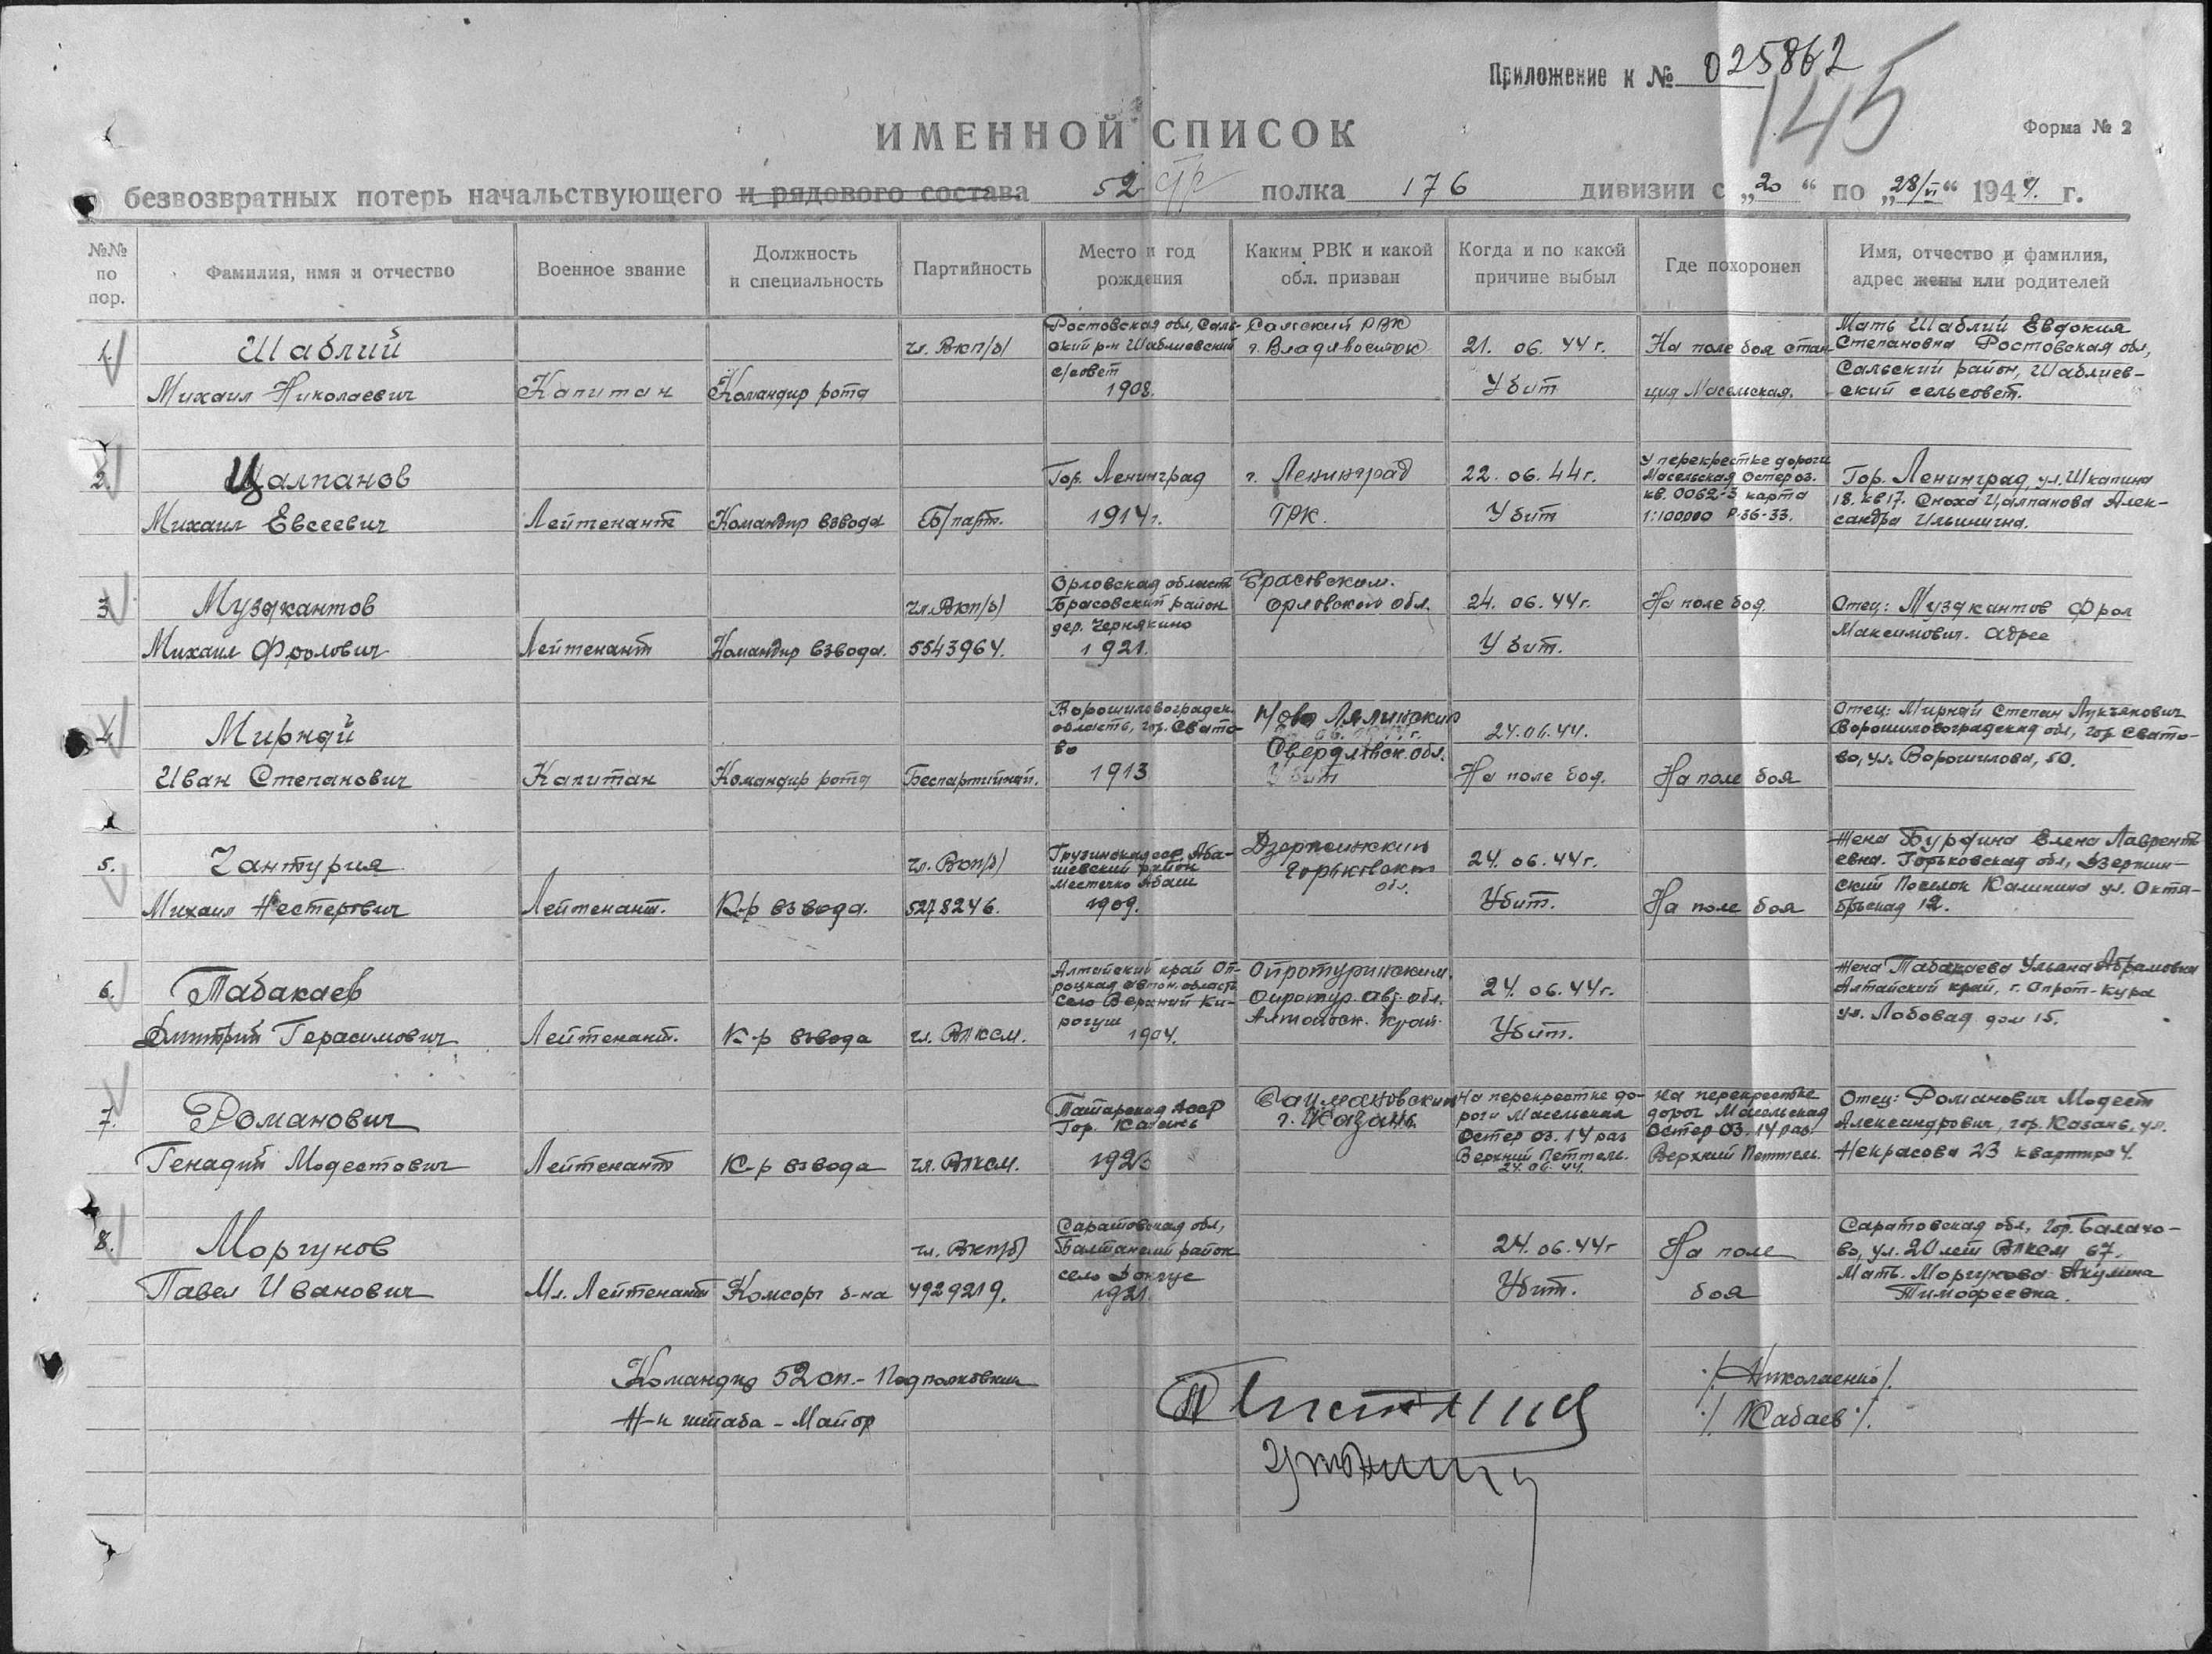 Приложение к № 025862
145
Форма № 2
ИМЕННОЙ СПИСОК
безвозвратных потерь начальствующего и рядового состава 52 ср полка 176 дивизии с „20“ по „28/VI“ 1944 г.
№№ по пор.
Фамилия, имя и отчество
Военное звание
Должность и специальность
Партийность
Место и год рождения
Каким РВК и какой обл. призван
Когда и по какой причине выбыл
Где похоронен
Имя, отчество и фамилия, адрес жены или родителей
1.
Шаблий
Михаил Николаевич
Капитан
Командир роты
чл. ВКП/б/
Ростовская обл, Саль-
ский р-н Шаблиевский
с/совет
1908.
Сальский РВК
г. Владивосток
21. 06. 44 г.
Убит
На поле боя стан-
ция Масельская.
Мать Шаблий Евдокия
Степановна Ростовская обл,
Сальский район, Шаблиев-
ский сельсовет.
2.
Цалпанов
Михаил Евсеевич
Лейтенант
Командир взвода
Б/парт.
Гор. Ленинград
1914г.
г. Ленинград
ГРК.
22. 06. 44г.
Убит
У перекрестке дороги
Масельская Остер оз.
кв. 0062-3 карта
1:100000 Р-36-33.
Гор. Ленинград, ул. Шкапина
18. кв 17. Сноха Цалпанова Алек-
сандра Ильинична.
3
Музыкантов
Михаил Фролович
Лейтенант
Командир взвода.
чл. ВКП/б/
5543964.
Орловская область
Брасовский район
дер. Чернякино
1921.
Брасовским.
Орловской обл.
24. 06. 44г.
Убит.
На поле боя.
Отец: Музыкантов Фрол
Максимович. Адрес
4.
Мирный
Иван Степанович
Капитан
Командир роты
Беспартийный.
Ворошиловградск.
область, гор. Свато-
во
1913
Ново Лялинским
Свердловск. обл.
24.06.44.
На поле боя.
На поле боя
Отец: Мирный Степан Лукьянович
Ворошиловградская обл, гор Свато-
во, ул. Ворошилова, 50.
5.
Чантурия
Михаил Нестерович
Лейтенант.
К-р взвода.
чл. ВКП/б/
5278246.
Грузинская сср, Аба-
шевский район
местечко Абаш
1909.
Дзержинским
Горьковской
обл.
24. 06. 44г.
Убит.
На поле боя
Жена Бурдина Елена Лаврентъ
евна. Горьковская обл, Дзержин-
ский Поселок Калинина ул. Октя-
брьская 12.
6.
Табакаев
Дмитрий Герасимович
Лейтенант.
К-р взвода
чл. ВЛКСМ.
Алтайский край Ой-
ротская автон. область
село Верхний Ки-
рогуш
1904.
Ойротуринским.
Ойротур. авт. обл.
Алтайск. край.
24. 06. 44г.
Убит.
Жена Табакаева Ульяна Абрамовна
Алтайский край, г. Ойрот-Кура
ул. Лобовая дом 15.
7.
Романович
Генадий Модестович
Лейтенант
К-р взвода
чл. ВЛКСМ.
Татарская АССР
Гор. Казань
1923
Баумановским
г. Казань.
На перекрестке до-
роги Масельская
Остер оз. 14 раз
Верхний Петтель.
24.06.44.
На перекрестке
дорог Масельская
Остер оз. 14 раз.
Верхний Петтел.
Отец: Романович Модест
Александрович, гор. Казань, ул.
Некрасова 23 квартира 4.
8.
Моргунов
Павел Иванович
Мл. Лейтенант
Комсорг б-на
чл. ВКП/б/
4929219.
Саратовская обл,
Балтайский район
село Донгуе
1921.
24. 06. 44г
Убит.
На поле
боя
Саратовская обл, гор. Балахо-
во, ул. 20 лет ВЛКСМ 67.
Мать. Моргунова Акулина
Тимофеевна.
Командир 52 сп. - Подполковник
/Николаенко/.
Н-к штаба - Майор
/Кабаев/.